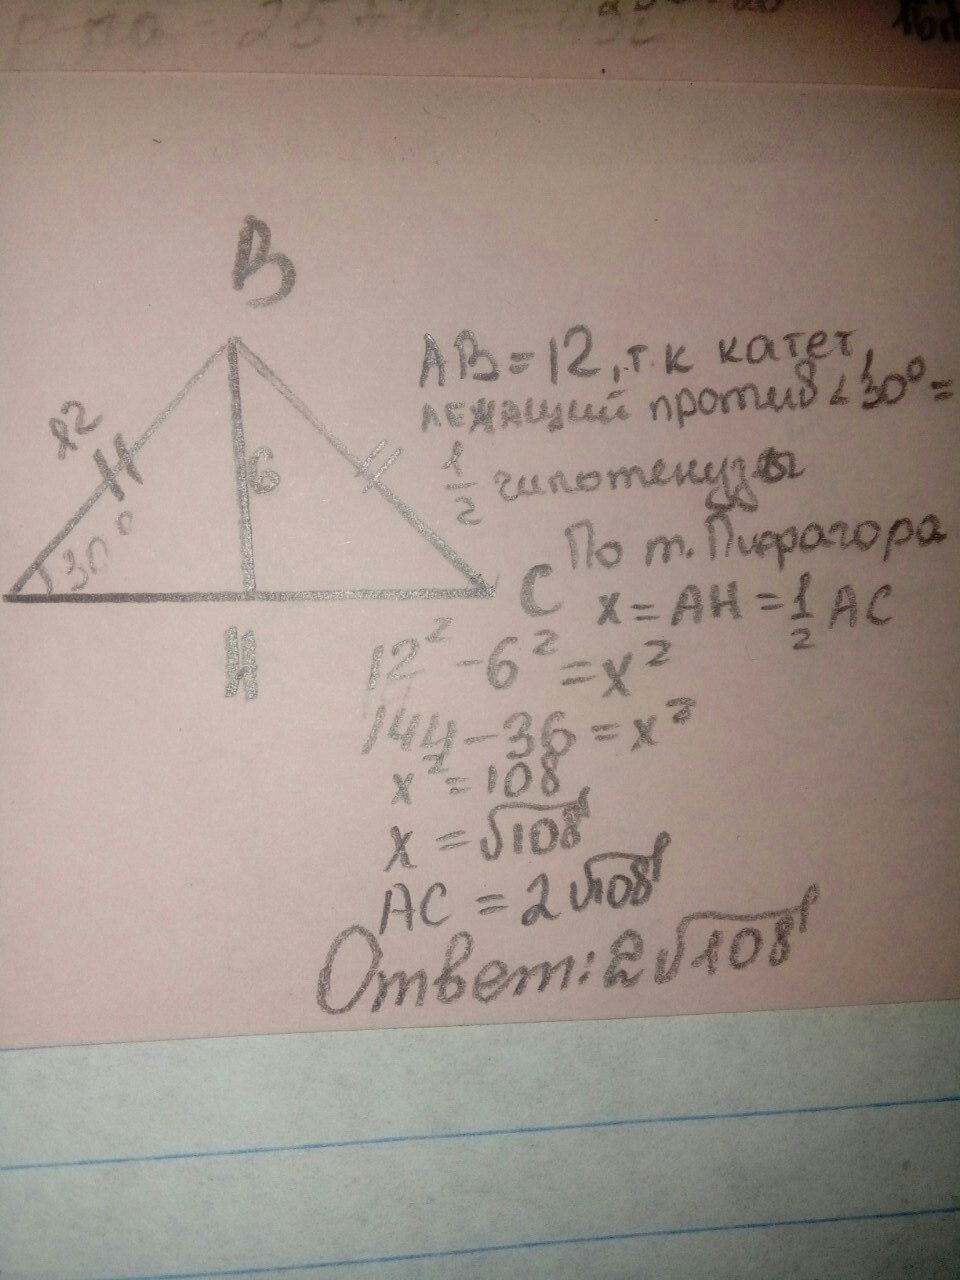 B
12
6
30°
H
C
AB = 12, т.к катет,
лежащий против ∠30° =
1/2 гипотенузы
По т. Пифрагора
x = AH = 1/2 AC
12² - 6² = x²
144 - 36 = x²
x² = 108
x = √108
AC = 2√108
Ответ: 2√108